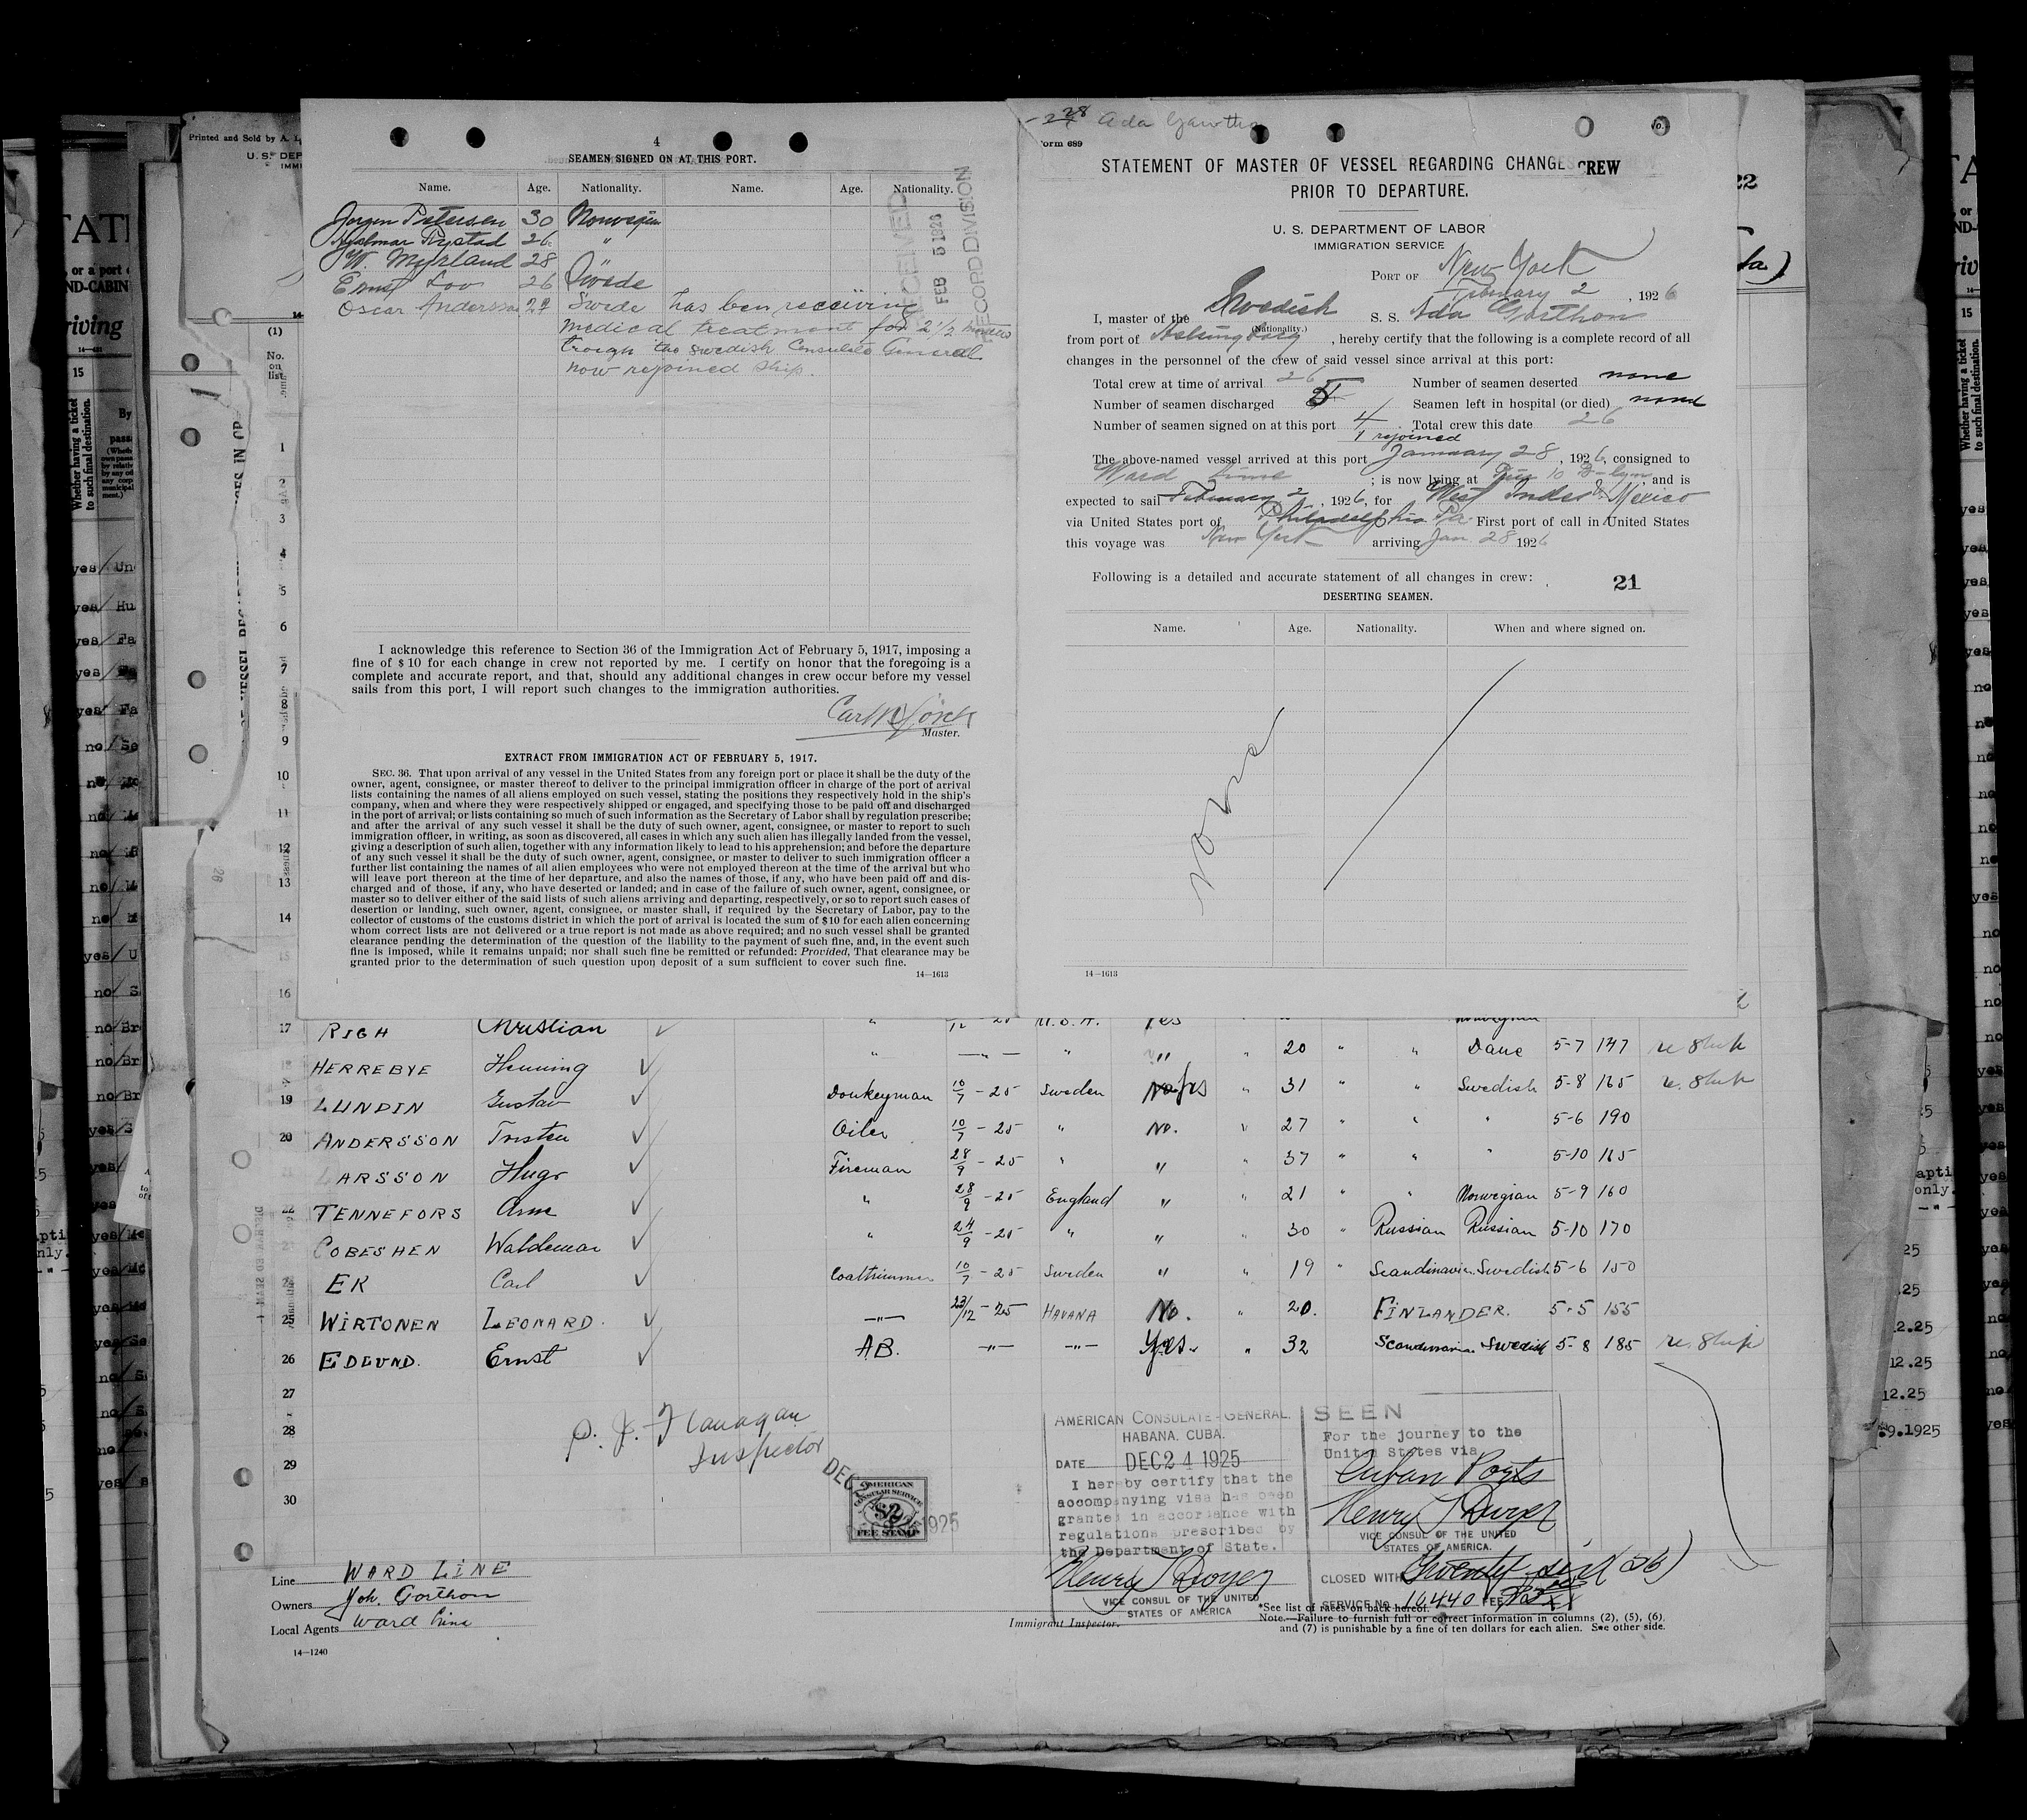 4
SEAMEN SIGNED ON AT THIS PORT.
Name. Age. Nationality. Name. Age. Nationality.
Jorgen Petersen 30 Norwegian
Hjalmar Rystad 26 "
W. Myrland 28 "
Ernst Loo 26 Swede
Oscar Andersson Swede has ben receiving
medical treatment for 2 1/2 months
trough the Swedish Consulate General
now rejoined ship.
RECEIVED
FEB 5 1926
RECORD DIVISION
I acknowledge this reference to Section 36 of the Immigration Act of February 5, 1917, imposing a
fine of $10 for each change in crew not reported by me. I certify on honor that the foregoing is a
complete and accurate report, and that, should any additional changes in crew occur before my vessel
sails from this port, I will report such changes to the immigration authorities.
Master.
EXTRACT FROM IMMIGRATION ACT OF FEBRUARY 5, 1917.
SEC. 36. That upon arrival of any vessel in the United States from any foreign port or place it shall be the duty of the
owner, agent, consignee, or master thereof to deliver to the principal immigration officer in charge of the port of arrival
lists containing the names of all aliens employed on such vessel, stating the positions they respectively hold in the ship's
company, when and where they were respectively shipped or engaged, and specifying those to be paid off and discharged
in the port of arrival; or lists containing so much of such information as the Secretary of Labor shall by regulation prescribe;
and after the arrival of any such vessel it shall be the duty of such owner, agent, consignee, or master to report to such
immigration officer, in writing, as soon as discovered, all cases in which any such alien has illegally landed from the vessel,
giving a description of such alien, together with any information likely to lead to his apprehension; and before the departure
of any such vessel it shall be the duty of such owner, agent, consignee, or master to deliver to such immigration officer a
further list containing the names of all alien employees who were not employed thereon at the time of the arrival but who
will leave port thereon at the time of her departure, and also the names of those, if any, who have been paid off and dis-
charged and of those, if any, who have deserted or landed; and in case of the failure of such owner, agent, consignee, or
master so to deliver either of the said lists of such aliens arriving and departing, respectively, or so to report such cases of
desertion or landing, such owner, agent, consignee, or master shall, if required by the Secretary of Labor, pay to the
collector of customs of the customs district in which the port of arrival is located the sum of $10 for each alien concerning
whom correct lists are not delivered or a true report is not made as above required; and no such vessel shall be granted
clearance pending the determination of the question of the liability to the payment of such fine, and, in the event such
fine is imposed, while it remains unpaid; nor shall such fine be remitted or refunded: Provided, That clearance may be
granted prior to the determination of such question upon deposit of a sum sufficient to cover such fine.
14—1613
Form 689
STATEMENT OF MASTER OF VESSEL REGARDING CHANGES CREW
PRIOR TO DEPARTURE.
U. S. DEPARTMENT OF LABOR
IMMIGRATION SERVICE
PORT OF New York
February 2, 1926
I, master of the Swedish S. S. Ada Gorthon
(Nationality.)
from port of Helsingborg, hereby certify that the following is a complete record of all
changes in the personnel of the crew of said vessel since arrival at this port:
Total crew at time of arrival 26 Number of seamen deserted none
Number of seamen discharged 5 Seamen left in hospital (or died) none
Number of seamen signed on at this port 4 Total crew this date 26
1 rejoined
The above-named vessel arrived at this port January 28, 1926, consigned to
Ward Line; is now lying at Pier 10 B-lyn, and is
expected to sail February 2, 1926, for West Indes & Mexico
via United States port of Philadelphia Pa. First port of call in United States
this voyage was New York arriving Jan. 28 1926
Following is a detailed and accurate statement of all changes in crew:
21
DESERTING SEAMEN.
Name. Age. Nationality. When and where signed on.
none
14—1613
17 RIGH Christian U.S.A. Yes
HERREBYE Henning " —"— " " " 20 " " Dane 5-7 147 re. Ship
19 LUNDIN Gustav Donkeyman 10/7 - 25 Sweden yes " 31 " " Swedish 5-8 165 re. Ship
20 ANDERSSON Tristen Oiler 10/7 - 25 " No. " 27 " " " 5-6 190
LARSSON Hugo Fireman 28/9 - 25 " " " 37 " " " 5-10 165
22 TENNEFORS Arne " 28/9 - 25 England " " 21 " " Norwegian 5-9 160
COBESHEN Waldemar " 24/9 - 25 " " " 30 " Russian Russian 5-10 170
24 EK Carl Coaltrimmer 10/7 - 25 Sweden " " 19 " Scandinavian Swedish 5-6 150
25 WIRTONEN LEONARD. —"— 23/12 - 25 HAVANA No. " 20. FINLANDER. 5-5 155
26 EDLUND. Ernst AB. —"— —"— Yes " 32 Scandinavian Swedish 5-8 185 re. Ship
27
28
29
30
P. J. Flanagan
Inspector
AMERICAN
CONSULAR SERVICE
$2
FEE STAMP
AMERICAN CONSULATE-GENERAL.
HABANA, CUBA.
DATE DEC 24 1925
I hereby certify that the
accompanying visa has been
granted in accordance with
regulations prescribed by
the Department of State.
Henry T Dwyer
VICE CONSUL OF THE UNITED
STATES OF AMERICA
SEEN
For the journey to the
United States via
Cuban Ports
Henry T Dwyer
VICE CONSUL OF THE UNITED
STATES OF AMERICA.
CLOSED WITH Twenty-six (26)
SERVICE No. 16440 FEE
Line WARD LINE
Owners Joh. Gorthon
Local Agents Ward Line
14—1240
Immigrant Inspector.
*See list of races on back hereof.
Note.—Failure to furnish full or correct information in columns (2), (5), (6).
and (7) is punishable by a fine of ten dollars for each alien. See other side.